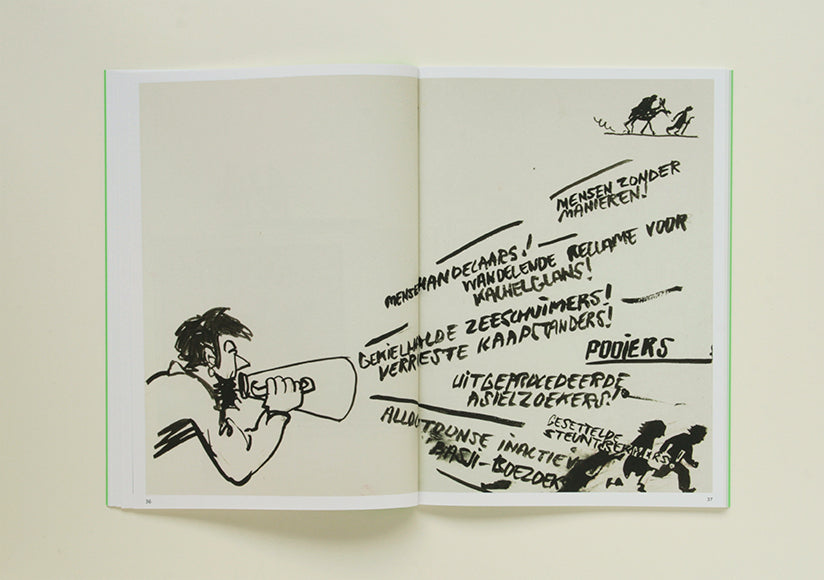 MENSEN ZONDER
MANIEREN!
MENSENHANDELAARS!
WANDELENDE RECLAME VOOR
KACHELGLANS!
GEKIELHAALDE ZEESCHUIMERS!
VERPESTE KAAPSTANDERS!
POOIERS
UITGEPROCEDEERDE
ASIELZOEKERS!
ALLOCHTOONSE INACTIEV
BASJI-BOEZOEK
GESETTELDE
STEUNTREKKERS!
36
37